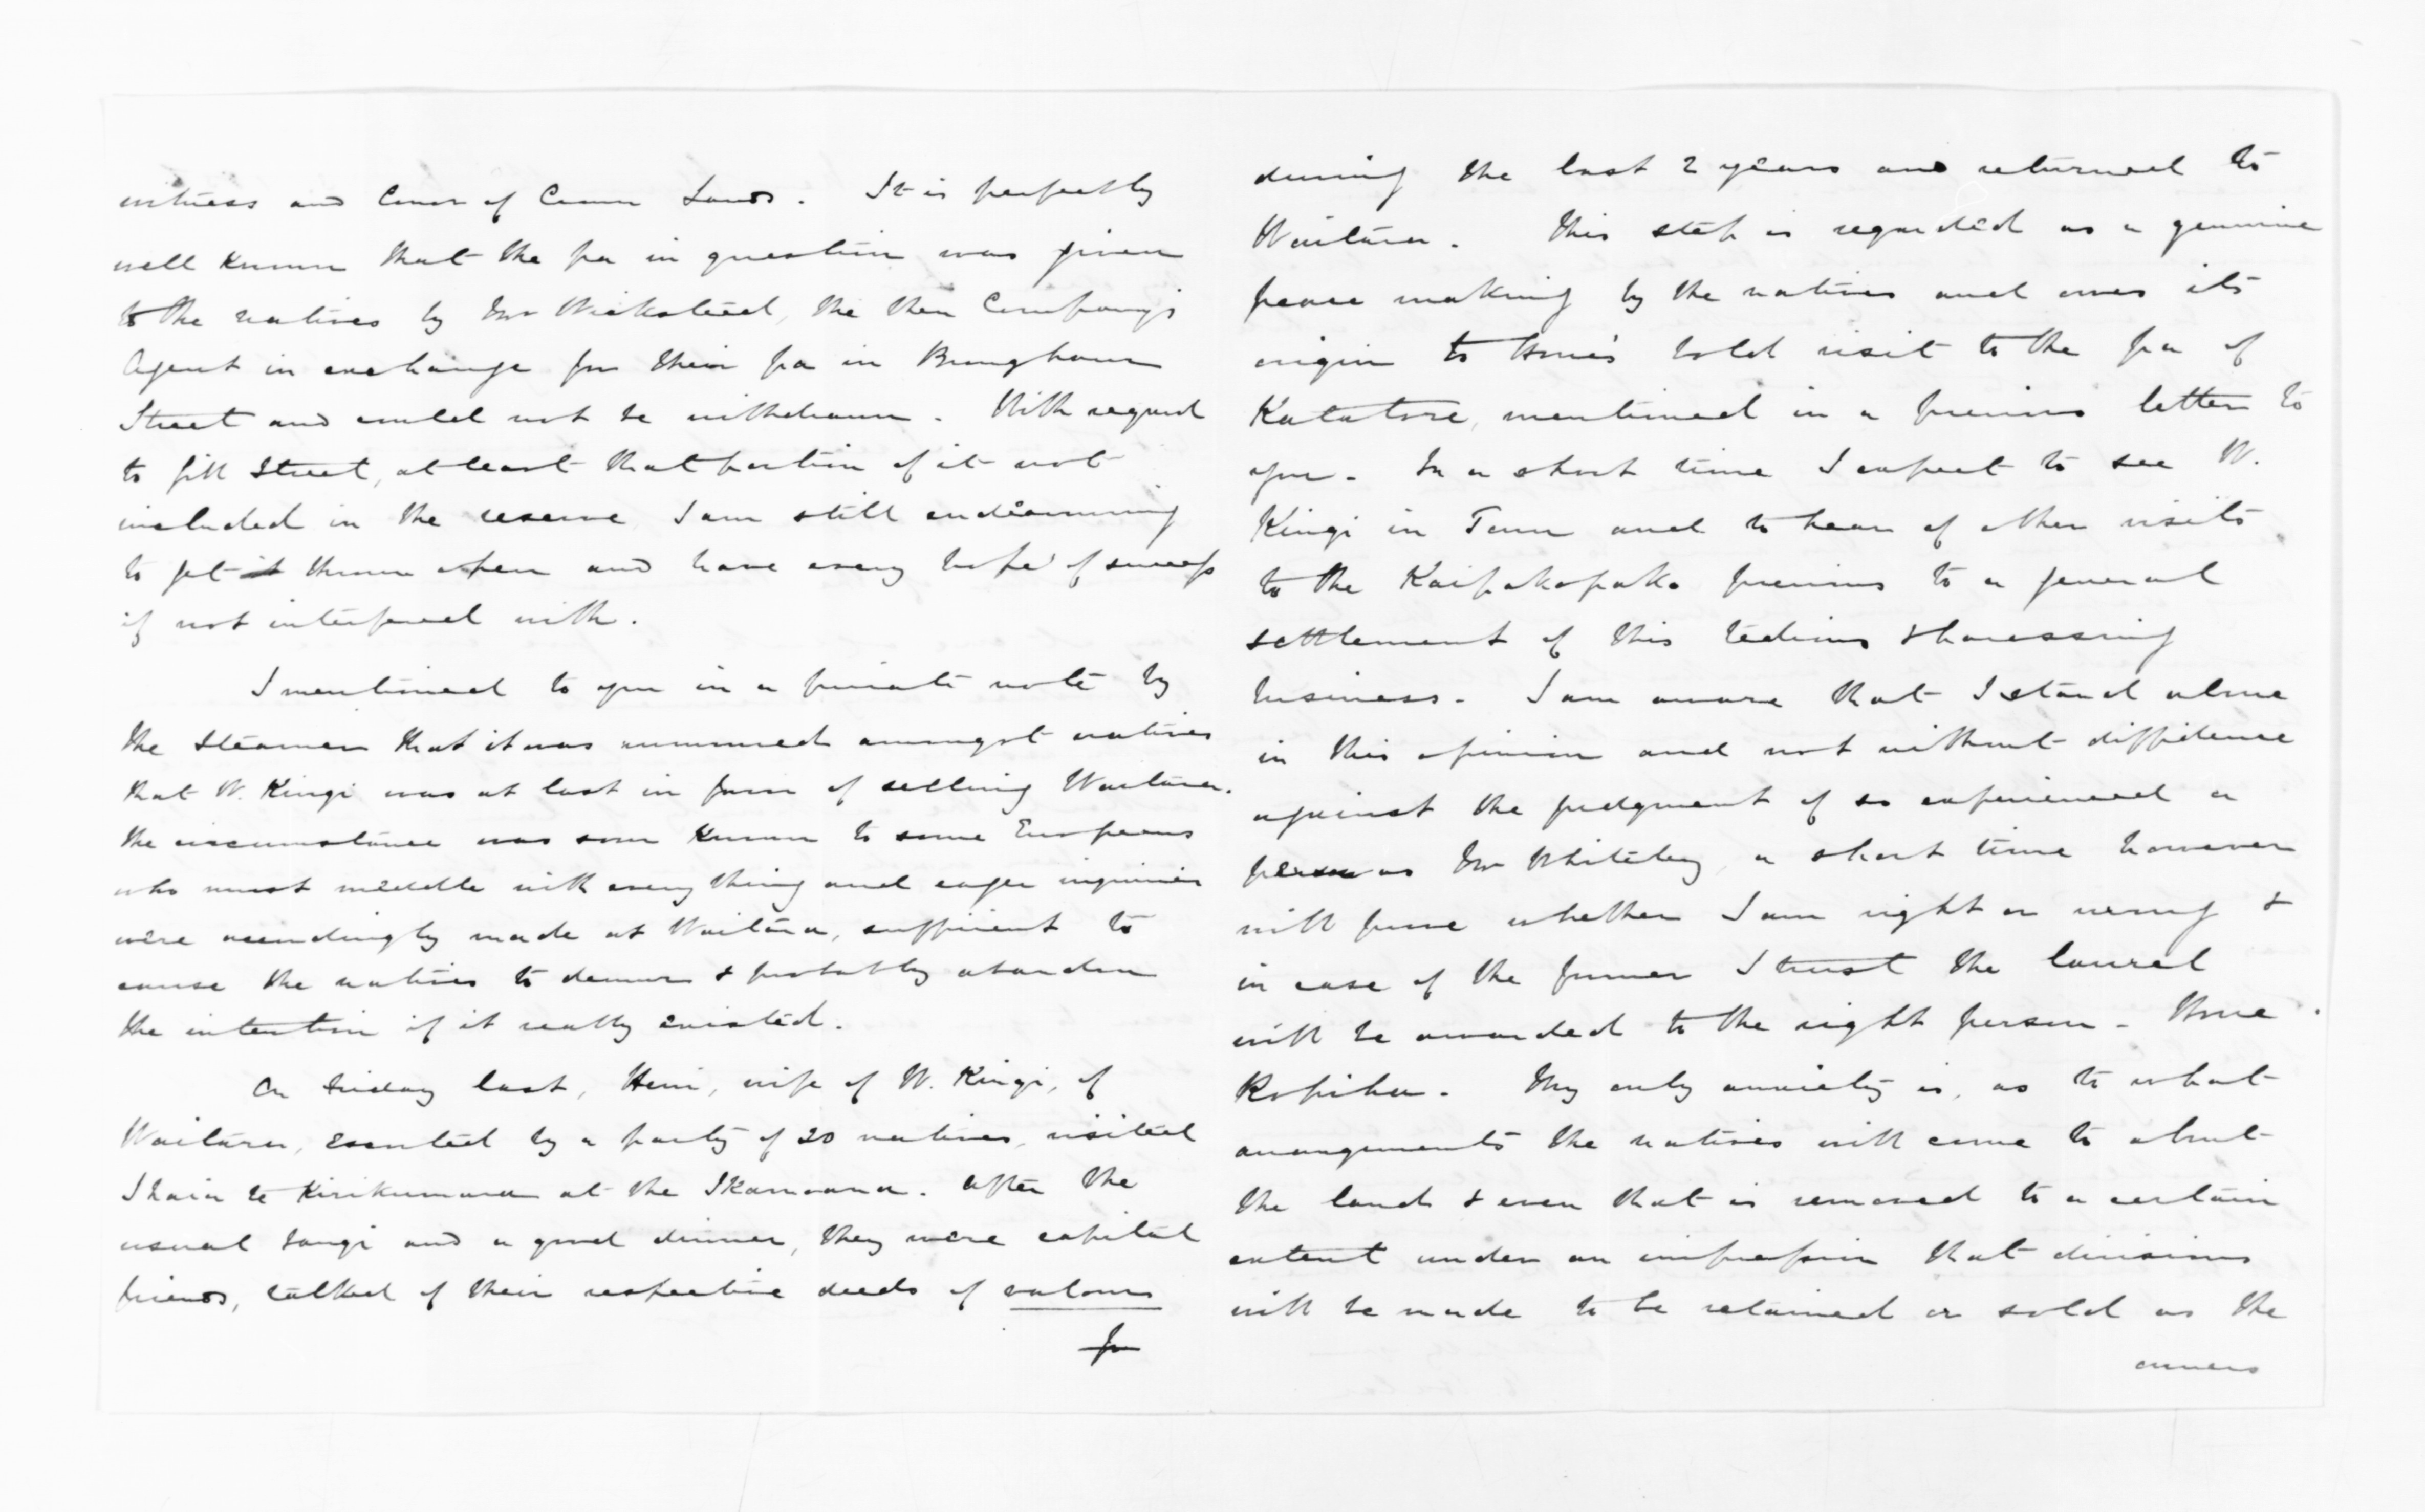 witness and Comr of Crown Lands. It is perfectly
well known that the pa in question was given
to the natives by Mr Wicksteed, the then Company's
Agent in exchange for their pa in Brougham
Street and could not be withdrawn. With regard
to Gill Street, at least that portion of it not
included in the reserve I am still endeavouring
to get it thrown open and have every hope of success
if not interfered with.
I mentioned to you in a private note by
the Steamer that it was rumoured amongst natives
that W. Kingi was at last in favor of selling Waitara.
The circumstance was soon known to some Europeans
who must meddle with every thing and eager inquiries
were accordingly made at Waitara, sufficient to
cause the natives to demur & probably abandon
the intention if it really existed.
On Friday last, Heni, wife of W. Kingi, of
Waitara, escorted by a party of 20 natives, visited
Ihaia te Kirikumara at the Ikamoana. After the
usual tangi and a good dinner, they were capital
friends, talked of their respective deeds of valour
during the last 2 years and returned to
Waitara. This step is regarded as a genuine
peace making by the natives and owes its
origin to Hone's bold visit to the pa of
Katatore, mentioned in a previous letter to
you. In a short time I expect to see W.
Kingi in Town and to hear of other visits
to the Kaipakopako previous to a general
settlement of this tedious & harassing
business. I am aware that I stand alone
in this opinion and not without diffidence
against the judgment of so experienced a
person as Mr Whiteley, a short time however
will prove whether I am right or wrong &
in case of the former I trust the laurel
will be awarded to the right person - Hone
Ropiha. My only anxiety is, as to what
arrangements the natives will come to about
the land & even that is removed to a certain
extent under an impression that divisions
will be made to be retained or sold as the
owners